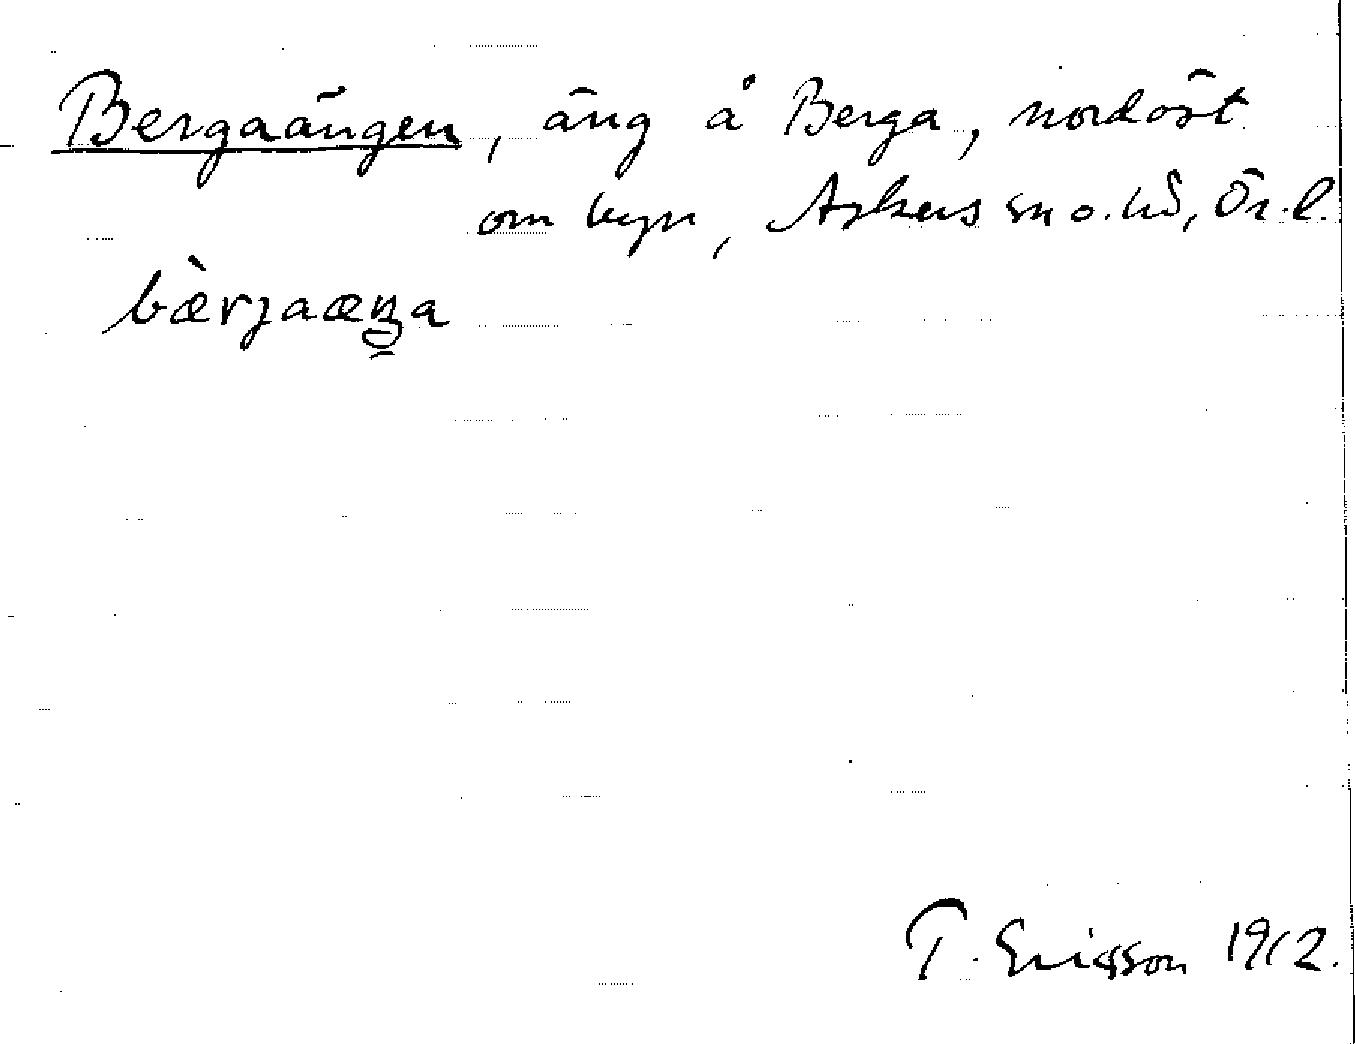 Bergaängen, äng å Berga, nordöst
om byn, Askers sn o. hd, Ör. l.
bæ̀rjaæŋa
T. Ericsson 1912.